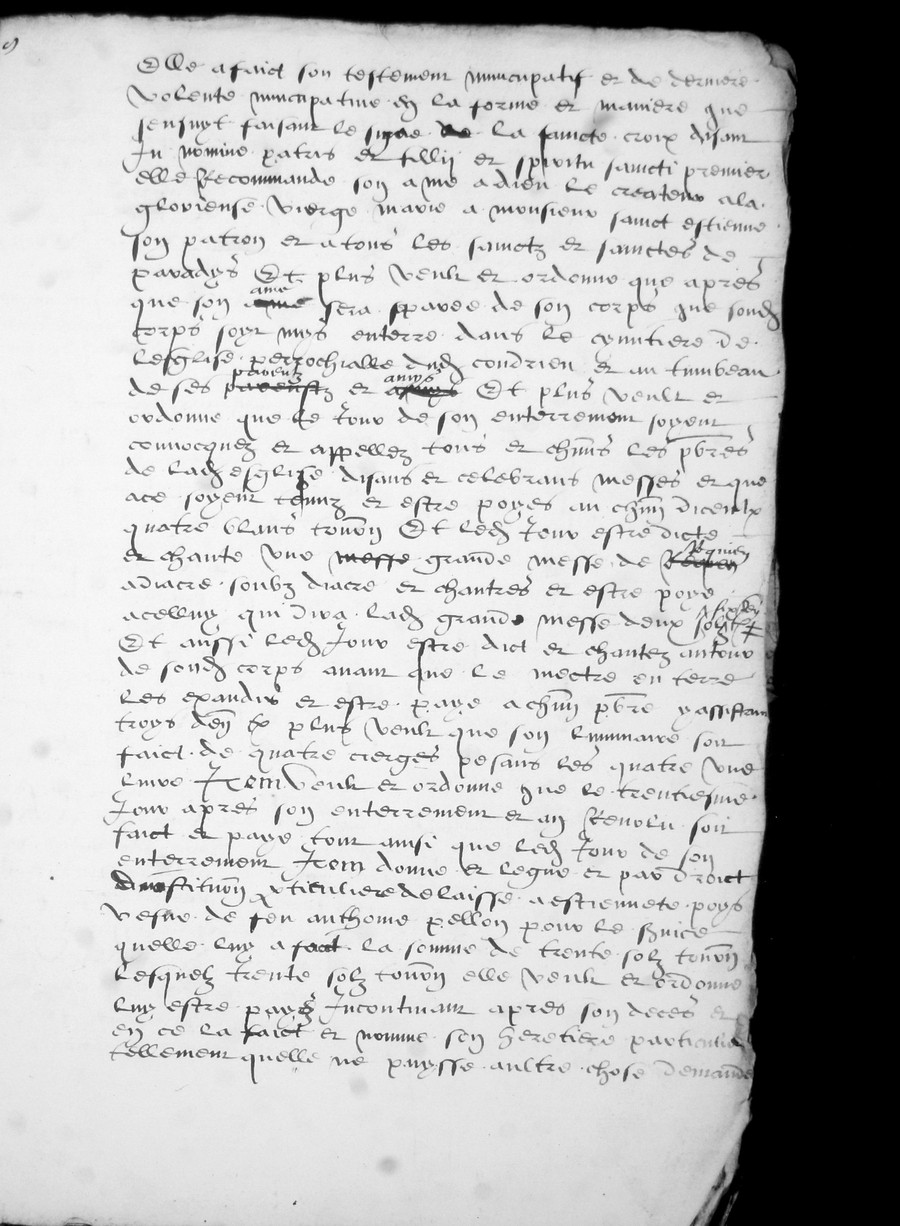 Elle a faict son testement nuncupatif et de derniere
volente nuncupative en la forme et maniere que
sensuyt faisant le signe de la saincte croix disant
In nomine patris et fillii et spiritu sancti premier
elle Recommande son ame a dieu le createur a la
glorieuse vierge marie a monsieur sainct estienne
son patron et a tous les sainctz et sainctes de
paradys Et plus veult et ordonne que apres
que son ame sera separee de son corps que sond
corps soyt mys enterre dans le cymitiere de
lesglise perrochialle dud condrieu et au tumbeau
de ses parentz et amys Et plus veult et
ordonne que le Jour de son enterrement soyent
convocquez et appellez tous et chuns les pbres
de lad esglise disans et celebrans messes et que
a ce soyent tenuz et estre poyes au chun diceulx
quatre blans tourn Et led Jour estre dicte
et chante une messe grande messe de Requien
a diacre soubz diacre et chantres et estre poye
a celluy qui dira lad grande messe deux solz
Et aussi led Jour estre dict et chantez autour
de sond corps avant que le mectre en terre
les exaudis et estre paye a chun pbre y assistant
troys den tz plus veult que son luminaire soit
faict de quatre cierges pesans les quatre une
livre Item veult et ordonne que le trentiesme
Jour apres son enterrement et an Revolu soit
faict et paye tout ainsi que led Jour de son
enterrement Item donne et legue et par droict
dinstitution pticuliere delaisse a estiennete poys
vesve de feu anthoine pellon pour le service
quelle luy a faict la somme de trente solz tourn
lesquelz trente solz tourn elle veult et ordonne
luy estre payez Incontinant apres son deces et
en ce la faict et nomme son heretiere particulie
tellement quelle ne puysse aultre chose demande